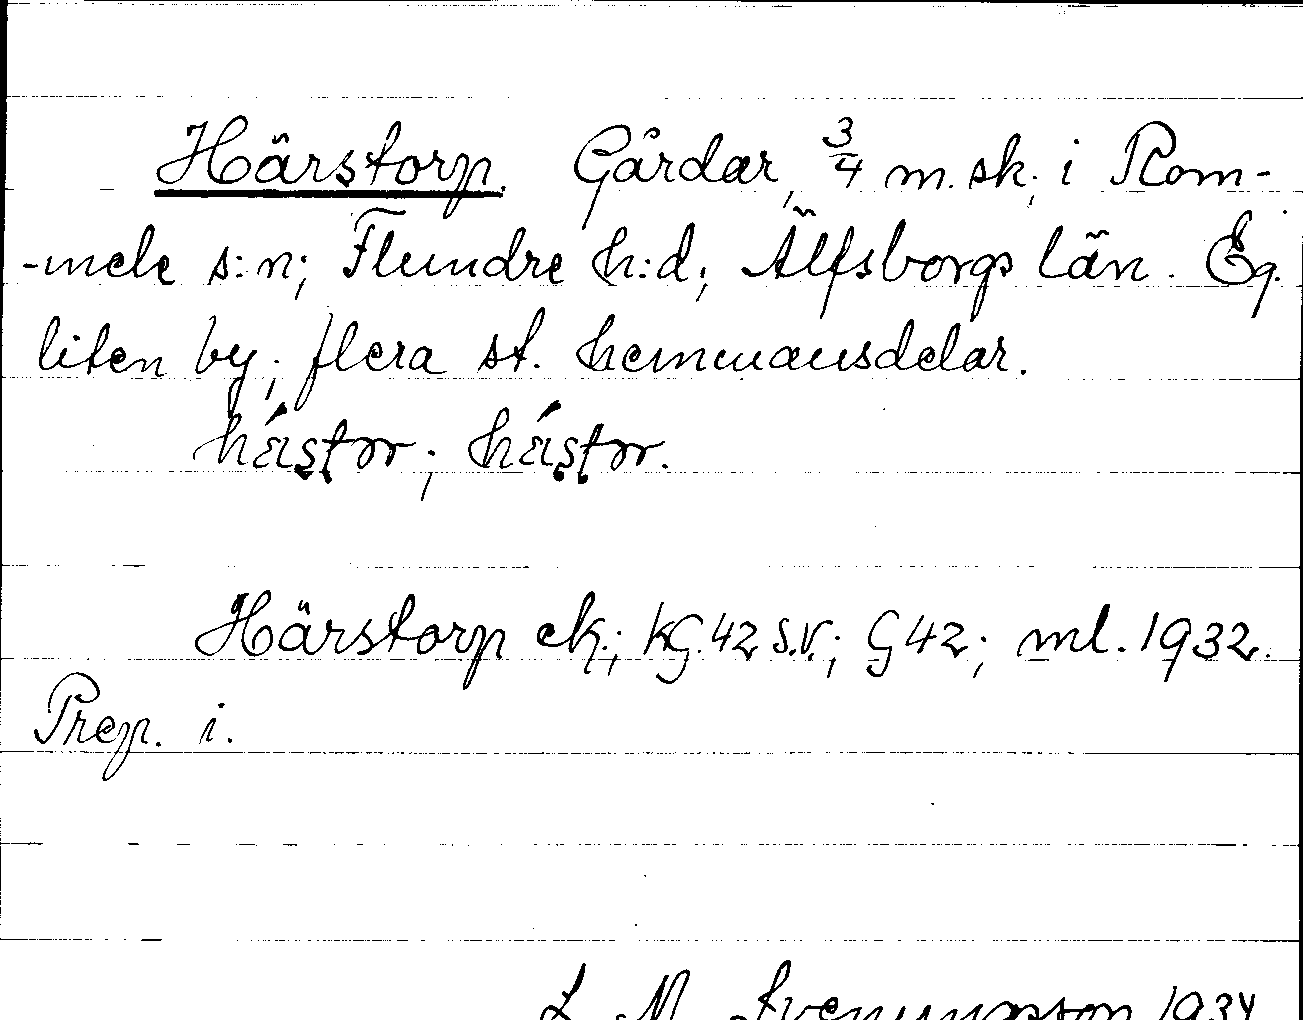 Härstorp. Gårdar, 3/4 m.sk; i Rom-
-mele s:n; Flundre h:d; Älfsborgs län. Eg.
liten by; flera st. hemmansdelar.
Härstorp ek.; KG.42 S.V.; G42; ml. 1932.
Prep. i.
L. M. Svenungsson 1934